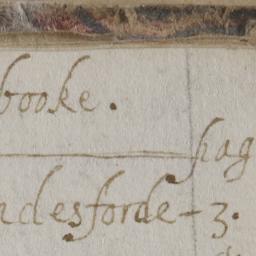 booke.
pag
ndesforde - 3.